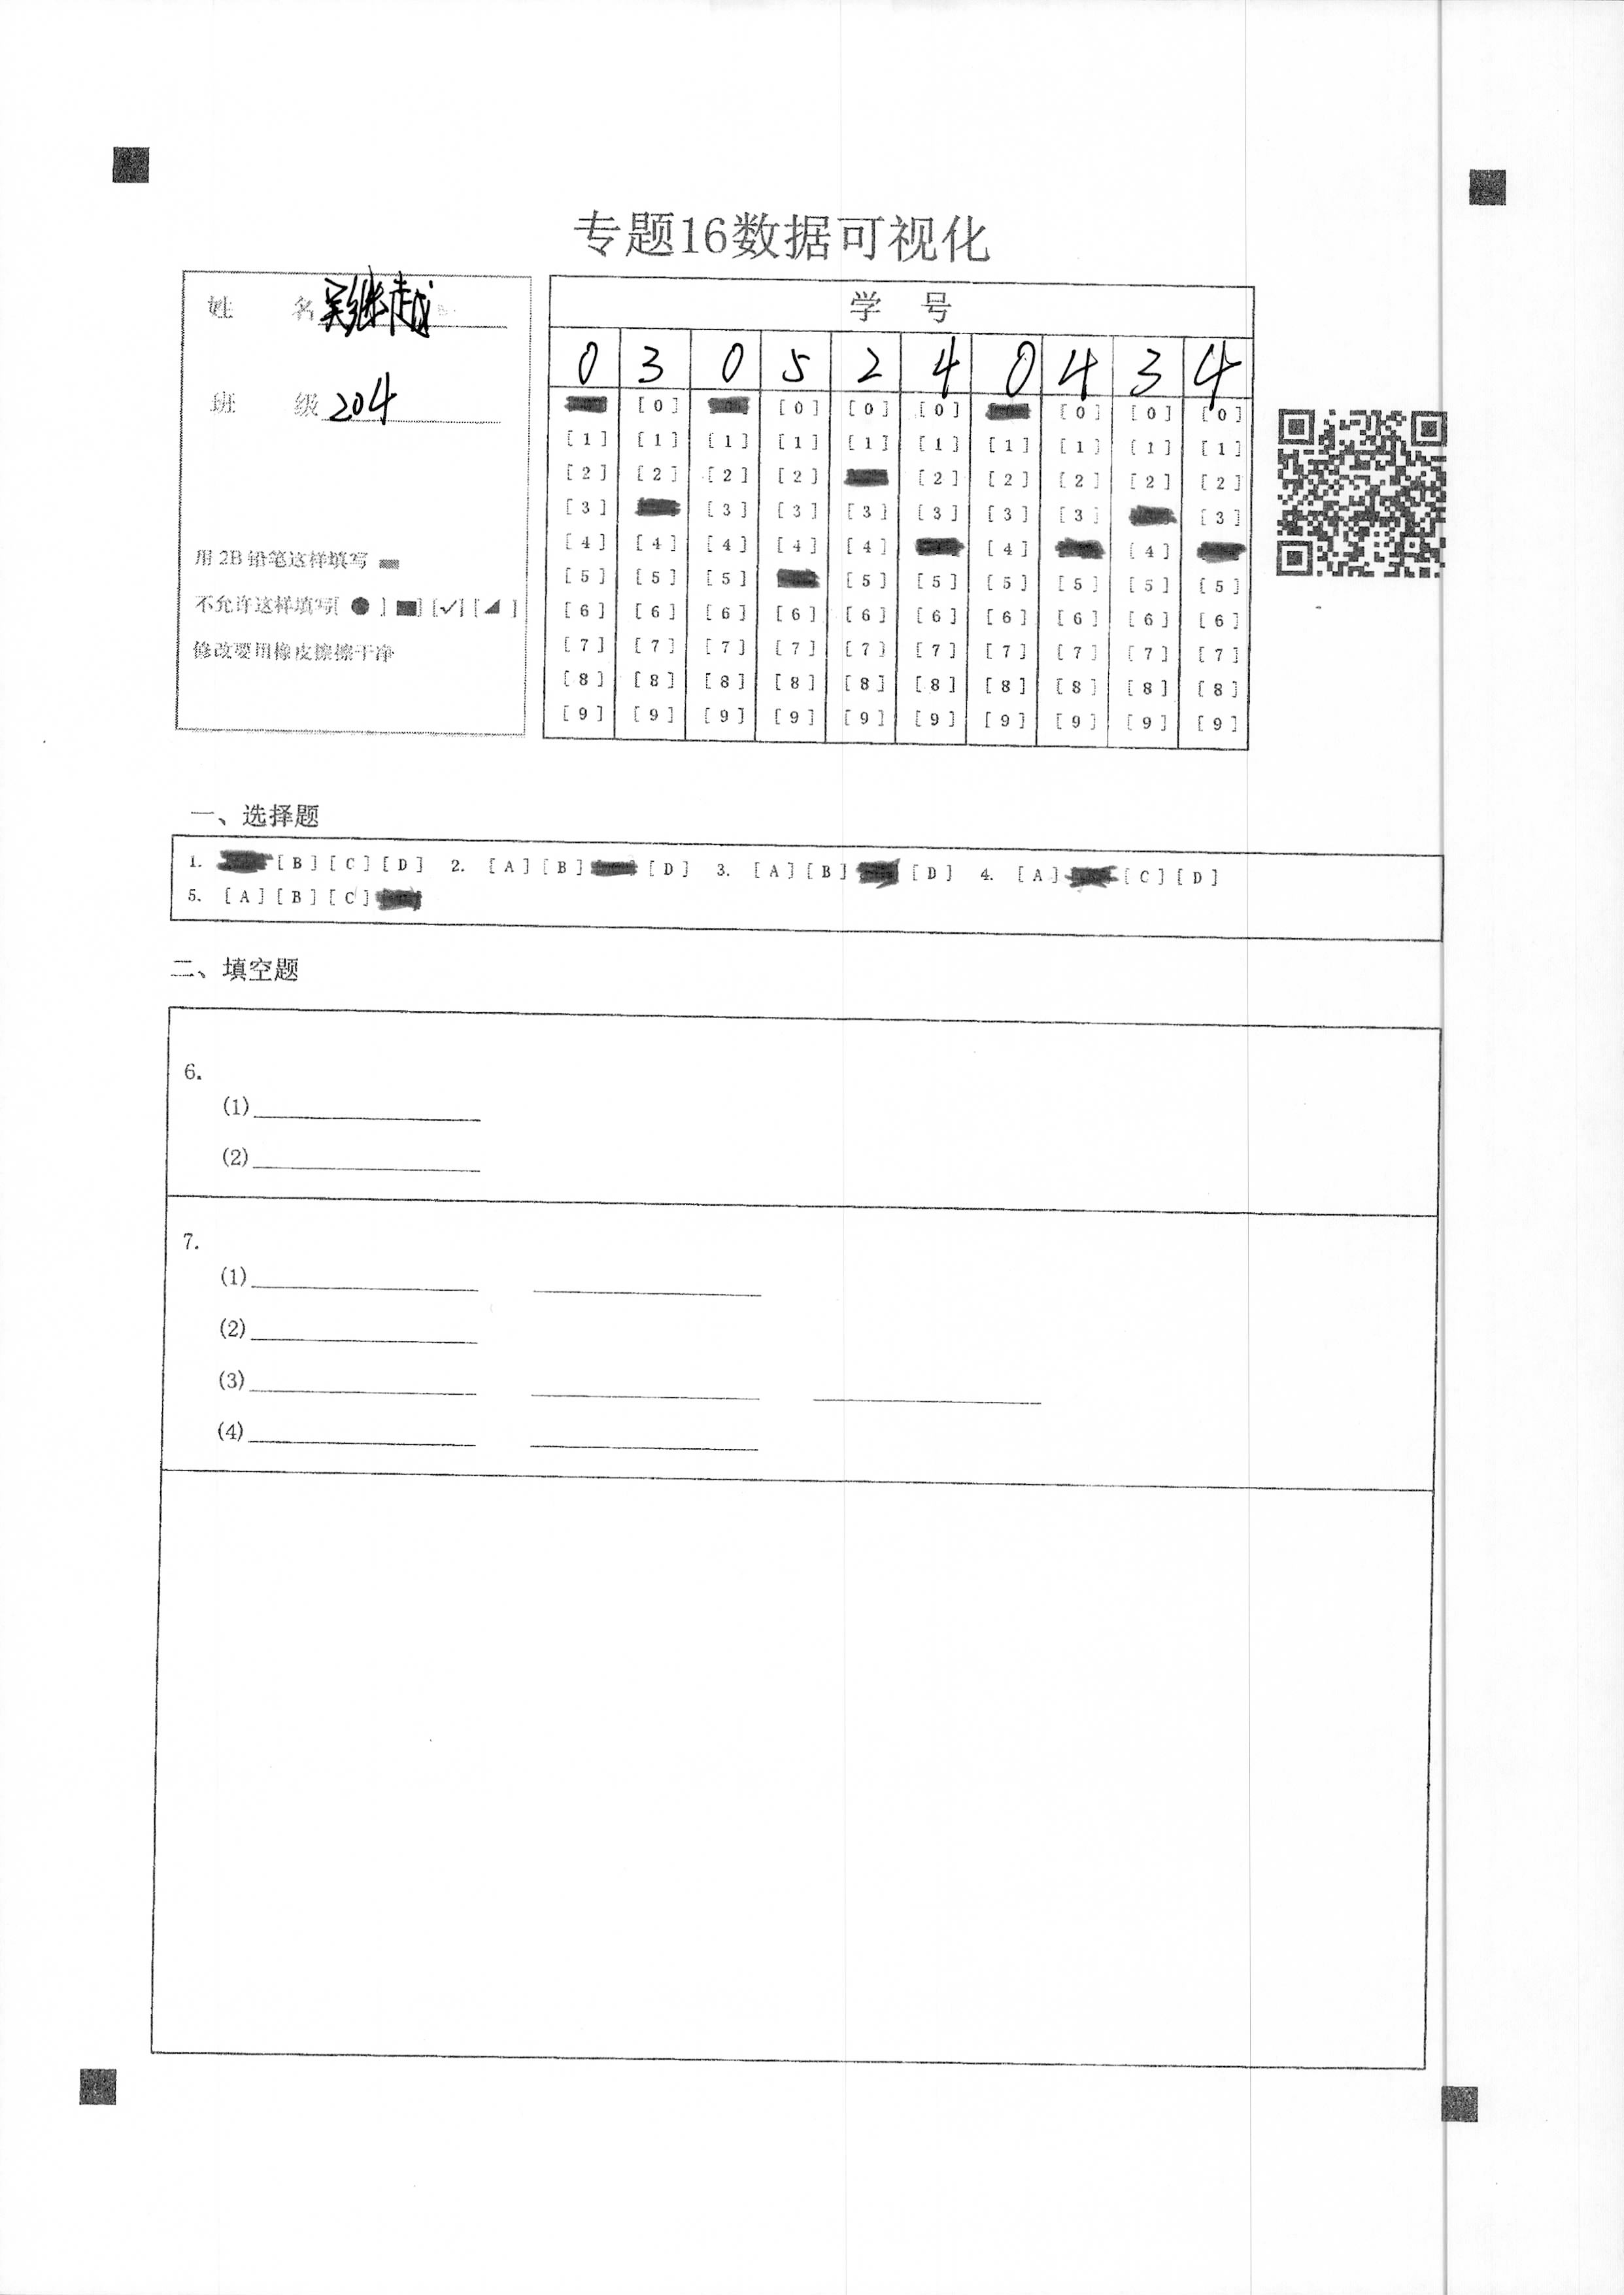 专题16数据可视化
姓 名 吴继越
班 级 204
用 2B 铅笔这样填写
不允许这样填写[ ● ] ■] [✓] [◢ ]
修改要用橡皮擦擦干净
学 号
0 3 0 5 2 4 0 4 3 4
[0] [0] [0] [0] [0] [0] [0]
[1] [1] [1] [1] [1] [1] [1] [1] [1] [1]
[2] [2] [2] [2] [2] [2] [2] [2] [2]
[3] [3] [3] [3] [3] [3] [3] [3]
[4] [4] [4] [4] [4] [4] [4]
[5] [5] [5] [5] [5] [5] [5] [5] [5]
[6] [6] [6] [6] [6] [6] [6] [6] [6] [6]
[7] [7] [7] [7] [7] [7] [7] [7] [7] [7]
[8] [8] [8] [8] [8] [8] [8] [8] [8] [8]
[9] [9] [9] [9] [9] [9] [9] [9] [9] [9]
一、选择题
1. [B] [C] [D] 2. [A] [B] [D] 3. [A] [B] [D] 4. [A] [C] [D]
5. [A] [B] [C]
二、填空题
6.
(1)
(2)
7.
(1)
(2)
(3)
(4)